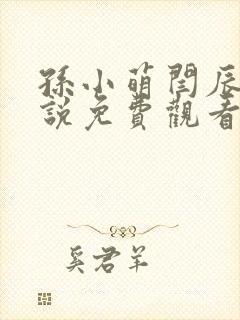 孫小萌閆辰
說免費觀看
奚君羊